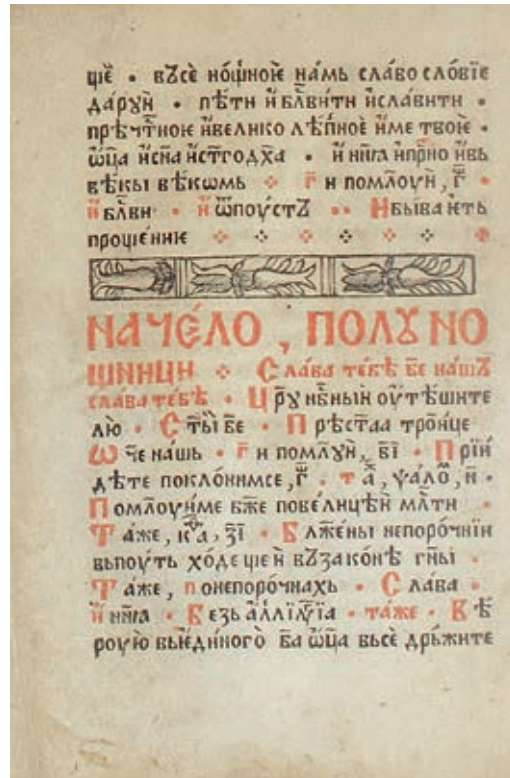 щїѥ • вЪсѐ но́щ́ноѥ на́мь сла́во сло́вїе
да́рꙋи̑ • пѣ́ти и҆ бл҃ви́ти и҆сла́вити •
прѣч҃тноѥ и҆вели́ко лѣ́пноѐ и҆́ме твоѐ •
ѡ҆ц҃а и҆сн҃а и҆ст҃годх҃а • и҆ нн҃ꙗ и҆пр҃но и҆вь
вѣ́кы вѣ́кѡмь • г҃и помло́ѹи̑, г҃ •
и҆ бл҃ви • и҆ ѿпоу́стЪ •• Нбы́ва ѥть
проще́ниѥ
НАЧЕ́ЛО , ПОЛꙊ НО
ЩНИЦИ • Сла́ва тебѣ̀ б҃е на́шЪ
сла́ва тебѣ̀ • Цр҃ꙋ нб҃ныи оу҆тѣ́шите
лю • Ст҃ы́и б҃е • Прѣст҃аа тро́ице
Ѡч҃е на́шь • г҃и помлꙋ́и, в҃і • Прїи
дѣ́те покло́нимсе, г҃ • та̑, ѱало̑, н҃ •
Помло́ѹиме бж҃е повели́цѣи мл҃ти
Та́же, ка̑, з҃і • Блаже́ны непоро́чнїи
вьпоу́ть ходе́щеи вЪзако́нѣ гн҃ы
Та́же, понепоро́чнахь • Сла́ва •
и҆ нн҃ꙗ • Безь а҆ллїлꙋ́їа • та́же • Вѣ́
роую вьѥ҆ди́ного б҃а ѡ҆ц҃а вьсѐ дрь́жите